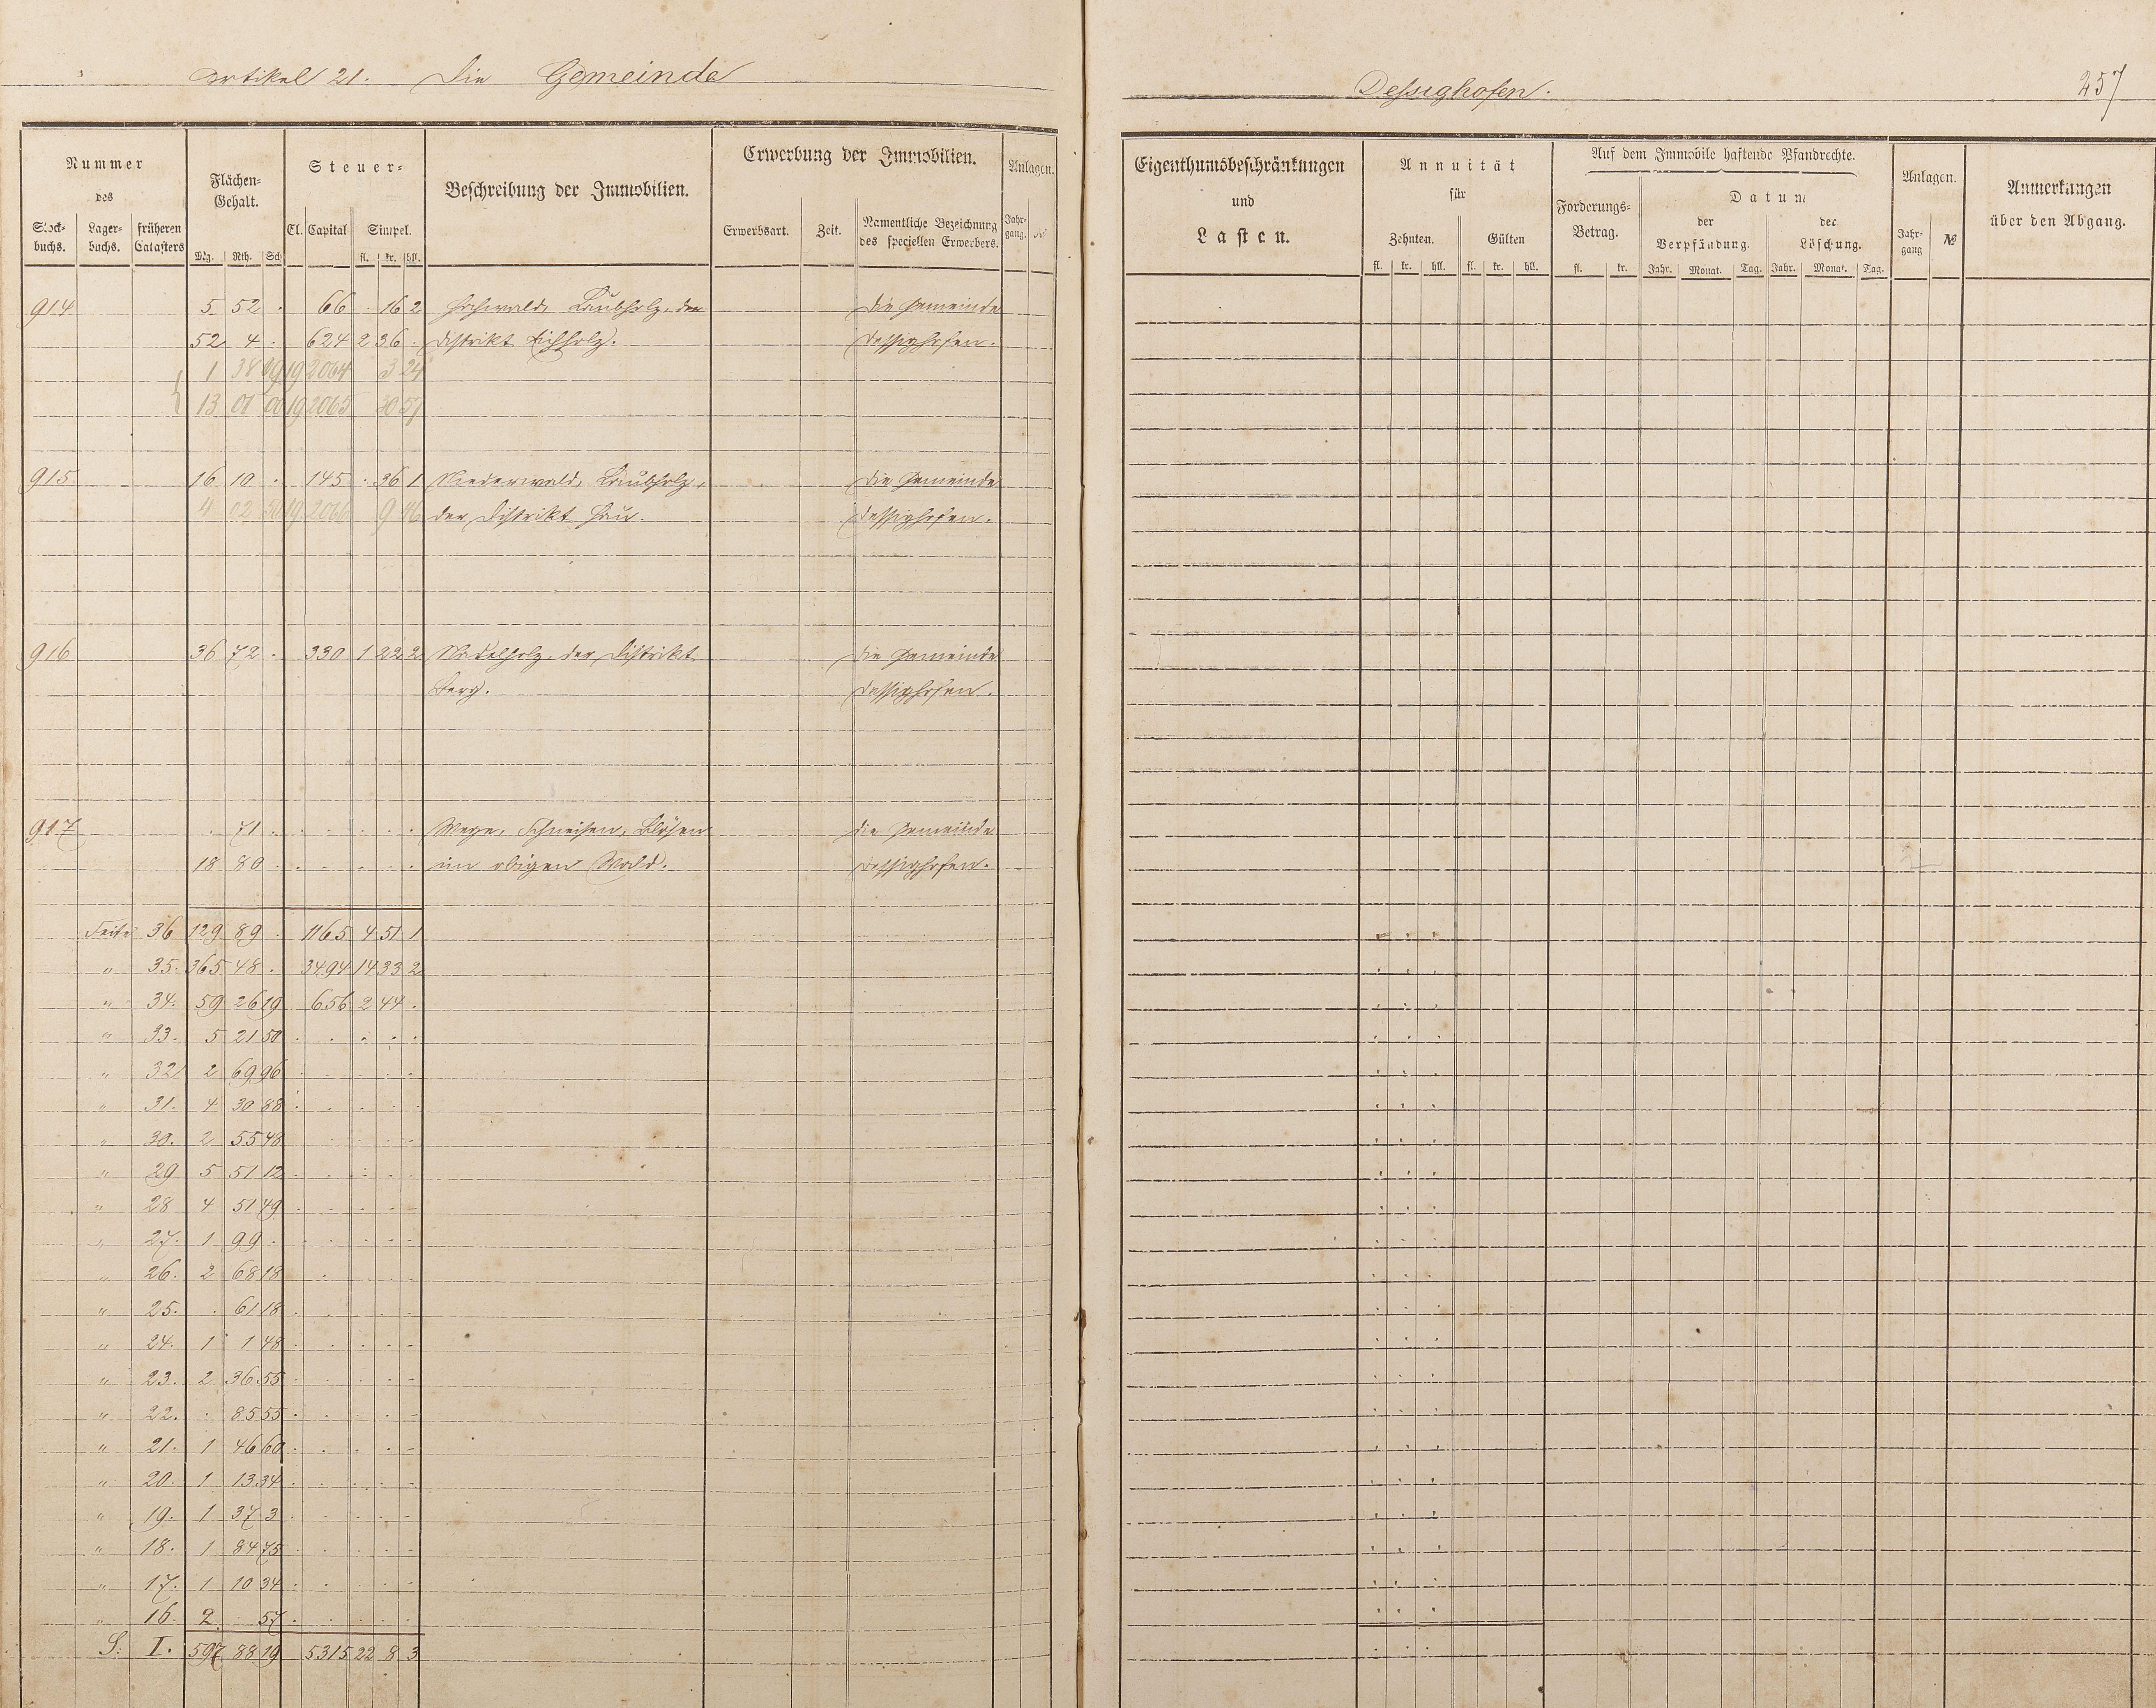 Artikel 21. Die Gemeinde
Dessighofen.
257
Nummer
des
Stock-
buchs.
Lager-
buchs.
früheren
Catasters
Flächen-
Gehalt.
Mg. Rth. Sch
Steuer-
Cl. Capital Simpel.
fl. kr. hll.
Beschreibung der Immobilien.
Erwerbung der Immobilien.
Erwerbsart. Zeit. Namentliche Bezeichnung
des speciellen Erwerbers.
Anlagen.
Jahr-
gang. №
Eigenthumsbeschränkungen
und
Lasten.
Annuität
für
Zehnten. Gülten
fl. kr. hll. fl. kr. hll.
Auf dem Immobile haftende Pfandrechte.
Forderungs-
Betrag.
fl. kr.
Datum
der
Verpfändung.
der
Löschung.
Jahr. Monat. Tag. Jahr. Monat. Tag.
Anlagen.
Jahr-
gang №
Anmerkungen
über den Abgang.
914 5 52 . 66 . 16 2 Hochwald, Laubholz, der Die Gemeinde
52 4 . 624 2 36 . Distrikt Eichholz. Dessighofen.
1 38 09 19 2064 3 24
13 01 00 19 2065 30 57
915 16 10 . 145 . 36 1 Niederwald, Laubholz, Die Gemeinde
4 02 50 19 2066 9 46 der Distrikt Hau. Dessighofen.
916 36 72 . 330 1 22 2 Nadelholz, der Distrikt Die Gemeinde
Berg. Dessighofen.
917 . 71 . . . . . Wege, Schneisen, Blösen Die Gemeinde
18 80 . . . . . im obigen Wald. Dessighofen.
Seite 36 129 89 . 1165 4 51 1
" 35. 365 48 . 3494 14 33 2
" 34. 59 26 19 656 2 44 .
" 33. 5 21 50 . . . .
" 32 2 69 96 . . . .
" 31. 4 30 88 . . . .
" 30. 2 55 48 . . . .
" 29 5 51 12 . . . .
" 28 4 51 49 . . . .
" 27. 1 99 . . . . .
" 26. 2 68 18 . . . .
" 25. . 61 18 . . . .
" 24. 1 1 48 . . . .
" 23. 2 36 55 . . . .
" 22. . 85 55 . . . .
" 21. 1 46 60 . . . .
" 20. 1 13 34 . . . .
" 19. 1 37 3 . . . .
" 18. 1 84 75 . . . .
" 17. 1 10 34 . . . .
" 16. 2 . 57 . . . .
S: I. 597 88 19 5315 22 8 3